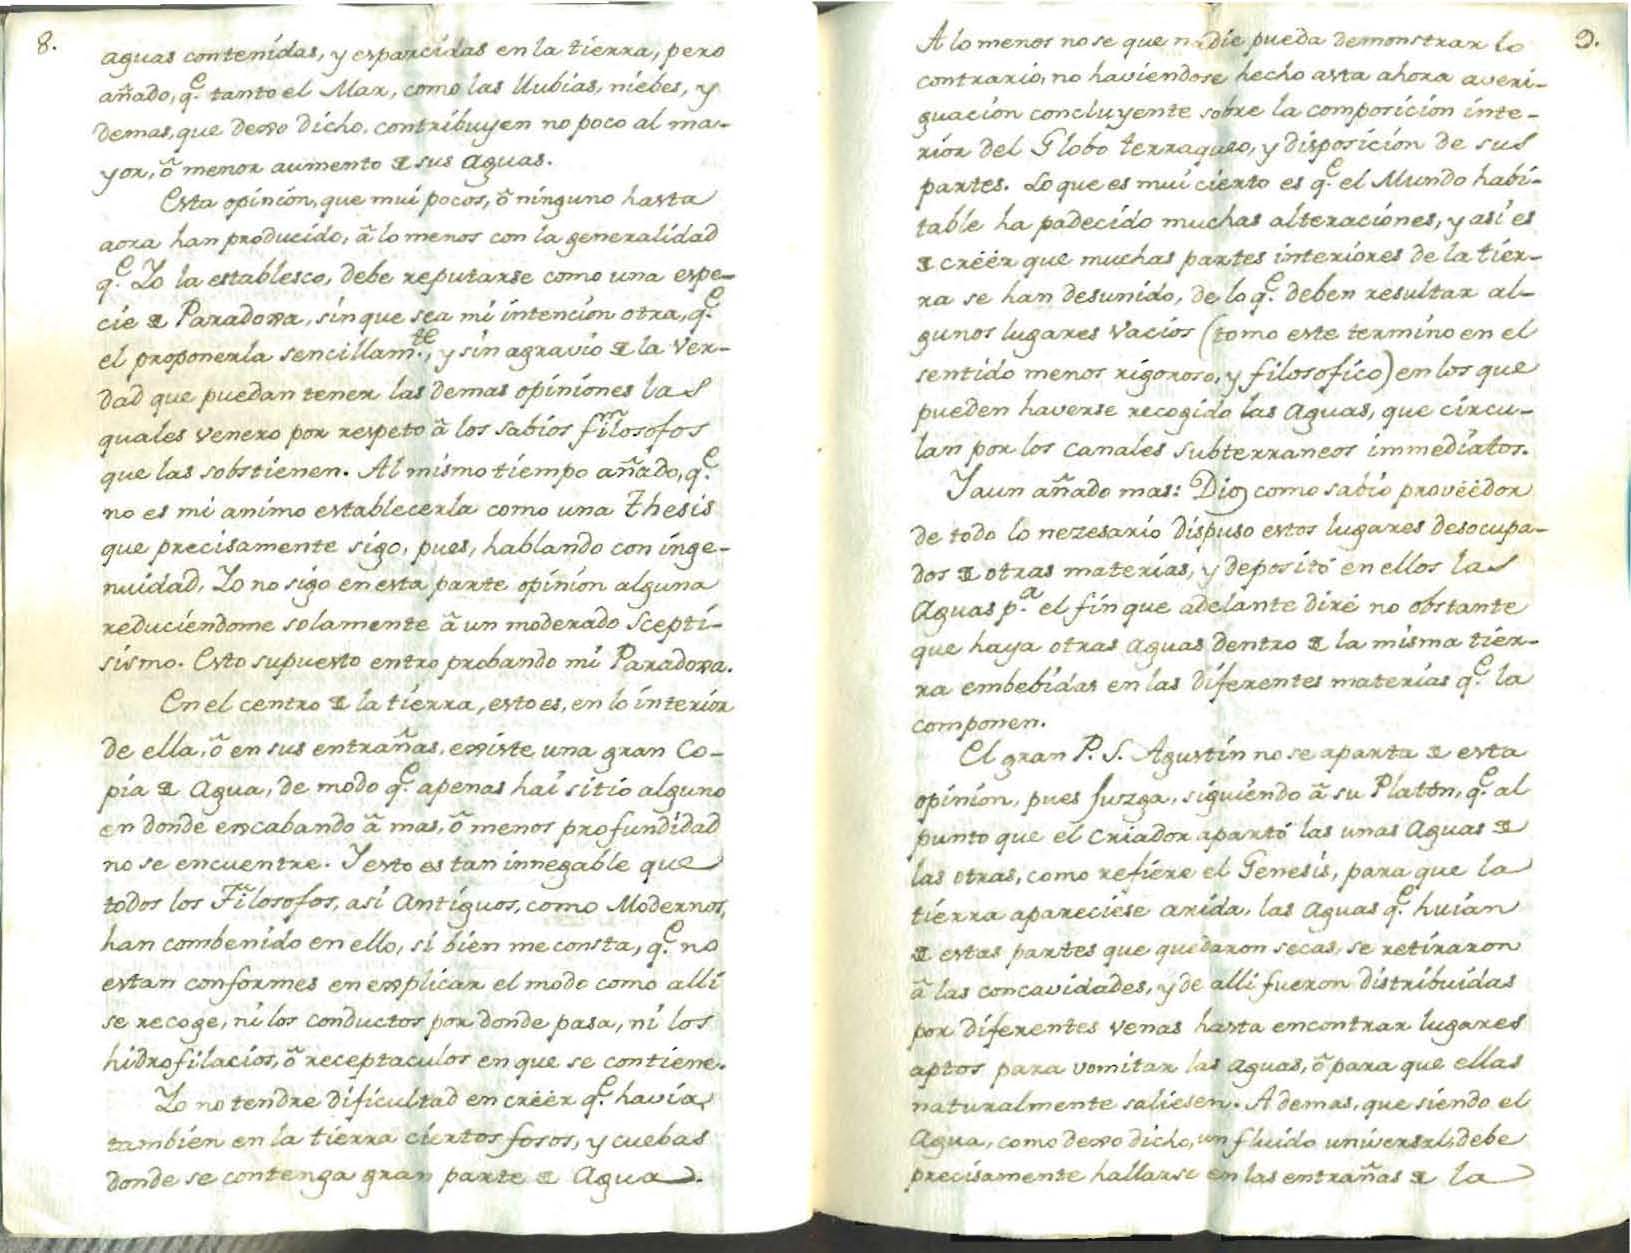 8.
aguas contenidas, y esparcidas en la tierra, pero
añado, q.e tanto el Mar, como las llubias, niebes, y
demas, que dexo dicho, contribuyen no poco al ma-
yor, õ menor aumento de sus aguas.
Esta opinion, que mui pocos, õ ninguno hasta
aora han producido, ã lo menos con la generalidad
q.e Yo la establesco, debe reputarse como una espe-
cie de Paradoxa, sin que sea mi intencion otra, q.e
el proponerla sencillam.te, y sin agravio de la Ver-
dad que puedan tener las demas opiniones las
quales venero por respeto ã los sabios filosofos
que las sobstienen. Al mismo tiempo añado, q.e
no es mi animo establecerla como una thesis
que precisamente sigo, pues, hablando con inge-
nuidad, Yo no sigo en esta parte opinion alguna
reduciendome solamente ã un moderado Scepti-
sismo. Esto supuesto entro probando mi Paradoxa.
En el centro de la tierra, esto es, en lo interior
de ella, õ en sus entrañas, existe una gran Co-
pia de Agua, de modo q.e apenas hai sitio alguno
en donde excabando ã mas, õ menos profundidad
no se encuentre. Y esto es tan innegable que
todos los Filosofos, asi Antiguos, como Modernos,
han combenido en ello, si bien me consta, q.e no
estan conformes en explicar el modo como alli
se recoge, ni los conductos por donde pasa, ni los
hidrofilacios, õ receptaculos en que se contiene.
Yo no tendre dificultad en crëer q.e havia
tambien en la tierra ciertos fosos, y cuebas
donde se contenga gran parte de Agua.
9.
A lo menos no se que nadie pueda demonstrar lo
contrario, no haviendose hecho asta ahora averi-
guacion concluyente sobre la composicion inte-
rior del Globo terraqueo, y disposicion de sus
partes. Lo que es mui cierto es q.e el Mundo habi-
table ha padecido muchas alteraciones, y asi es
de crëer que muchas partes interiores de la tier-
ra se han desunido, de lo q.e deben resultar al-
gunos lugares vacios (tomo este termino en el
sentido menos rigoroso, y filosofico) en los que
pueden haverse recogido las aguas, que circu-
lan por los canales subterraneos immediatos.
Y aun añado mas: Dios como sabio provëedor
de todo lo nezesario dispuso estos lugares desocupa-
dos de otras materias, y depositó en ellos las
Aguas p.a el fin que adelante diré no obstante
que haya otras aguas dentro de la misma tier-
ra embebidas en las diferentes materias q.e la
componen.
El gran P. S. Agustin no se aparta de esta
opinion, pues Juzga, siguiendo ã su Platon, q.e al
punto que el Criador apartó las unas Aguas de
las otras, como refiere el Genesis, para que la
tierra apareciese arida, las aguas q.e huian
de estas partes que quedaron secas, se retiraron
ã las concavidades, y de alli fueron distribuidas
por diferentes venas hasta encontrar lugares
aptos para vomitar las aguas, õ para que ellas
naturalmente saliesen. Ademas, que siendo el
Agua, como dexo dicho, un fluido universal, debe
precisamente hallarse en las entrañas de la